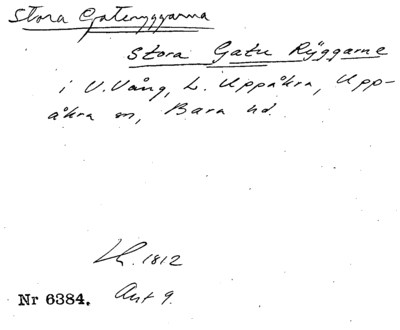 Stora Gateryggarna
Stora Gatu Ryggarne
i V.Vång, L. Uppåkra, Upp-
åkra sn, Bara hd.
Lh. 1812
Nr 6384. Akt 9.